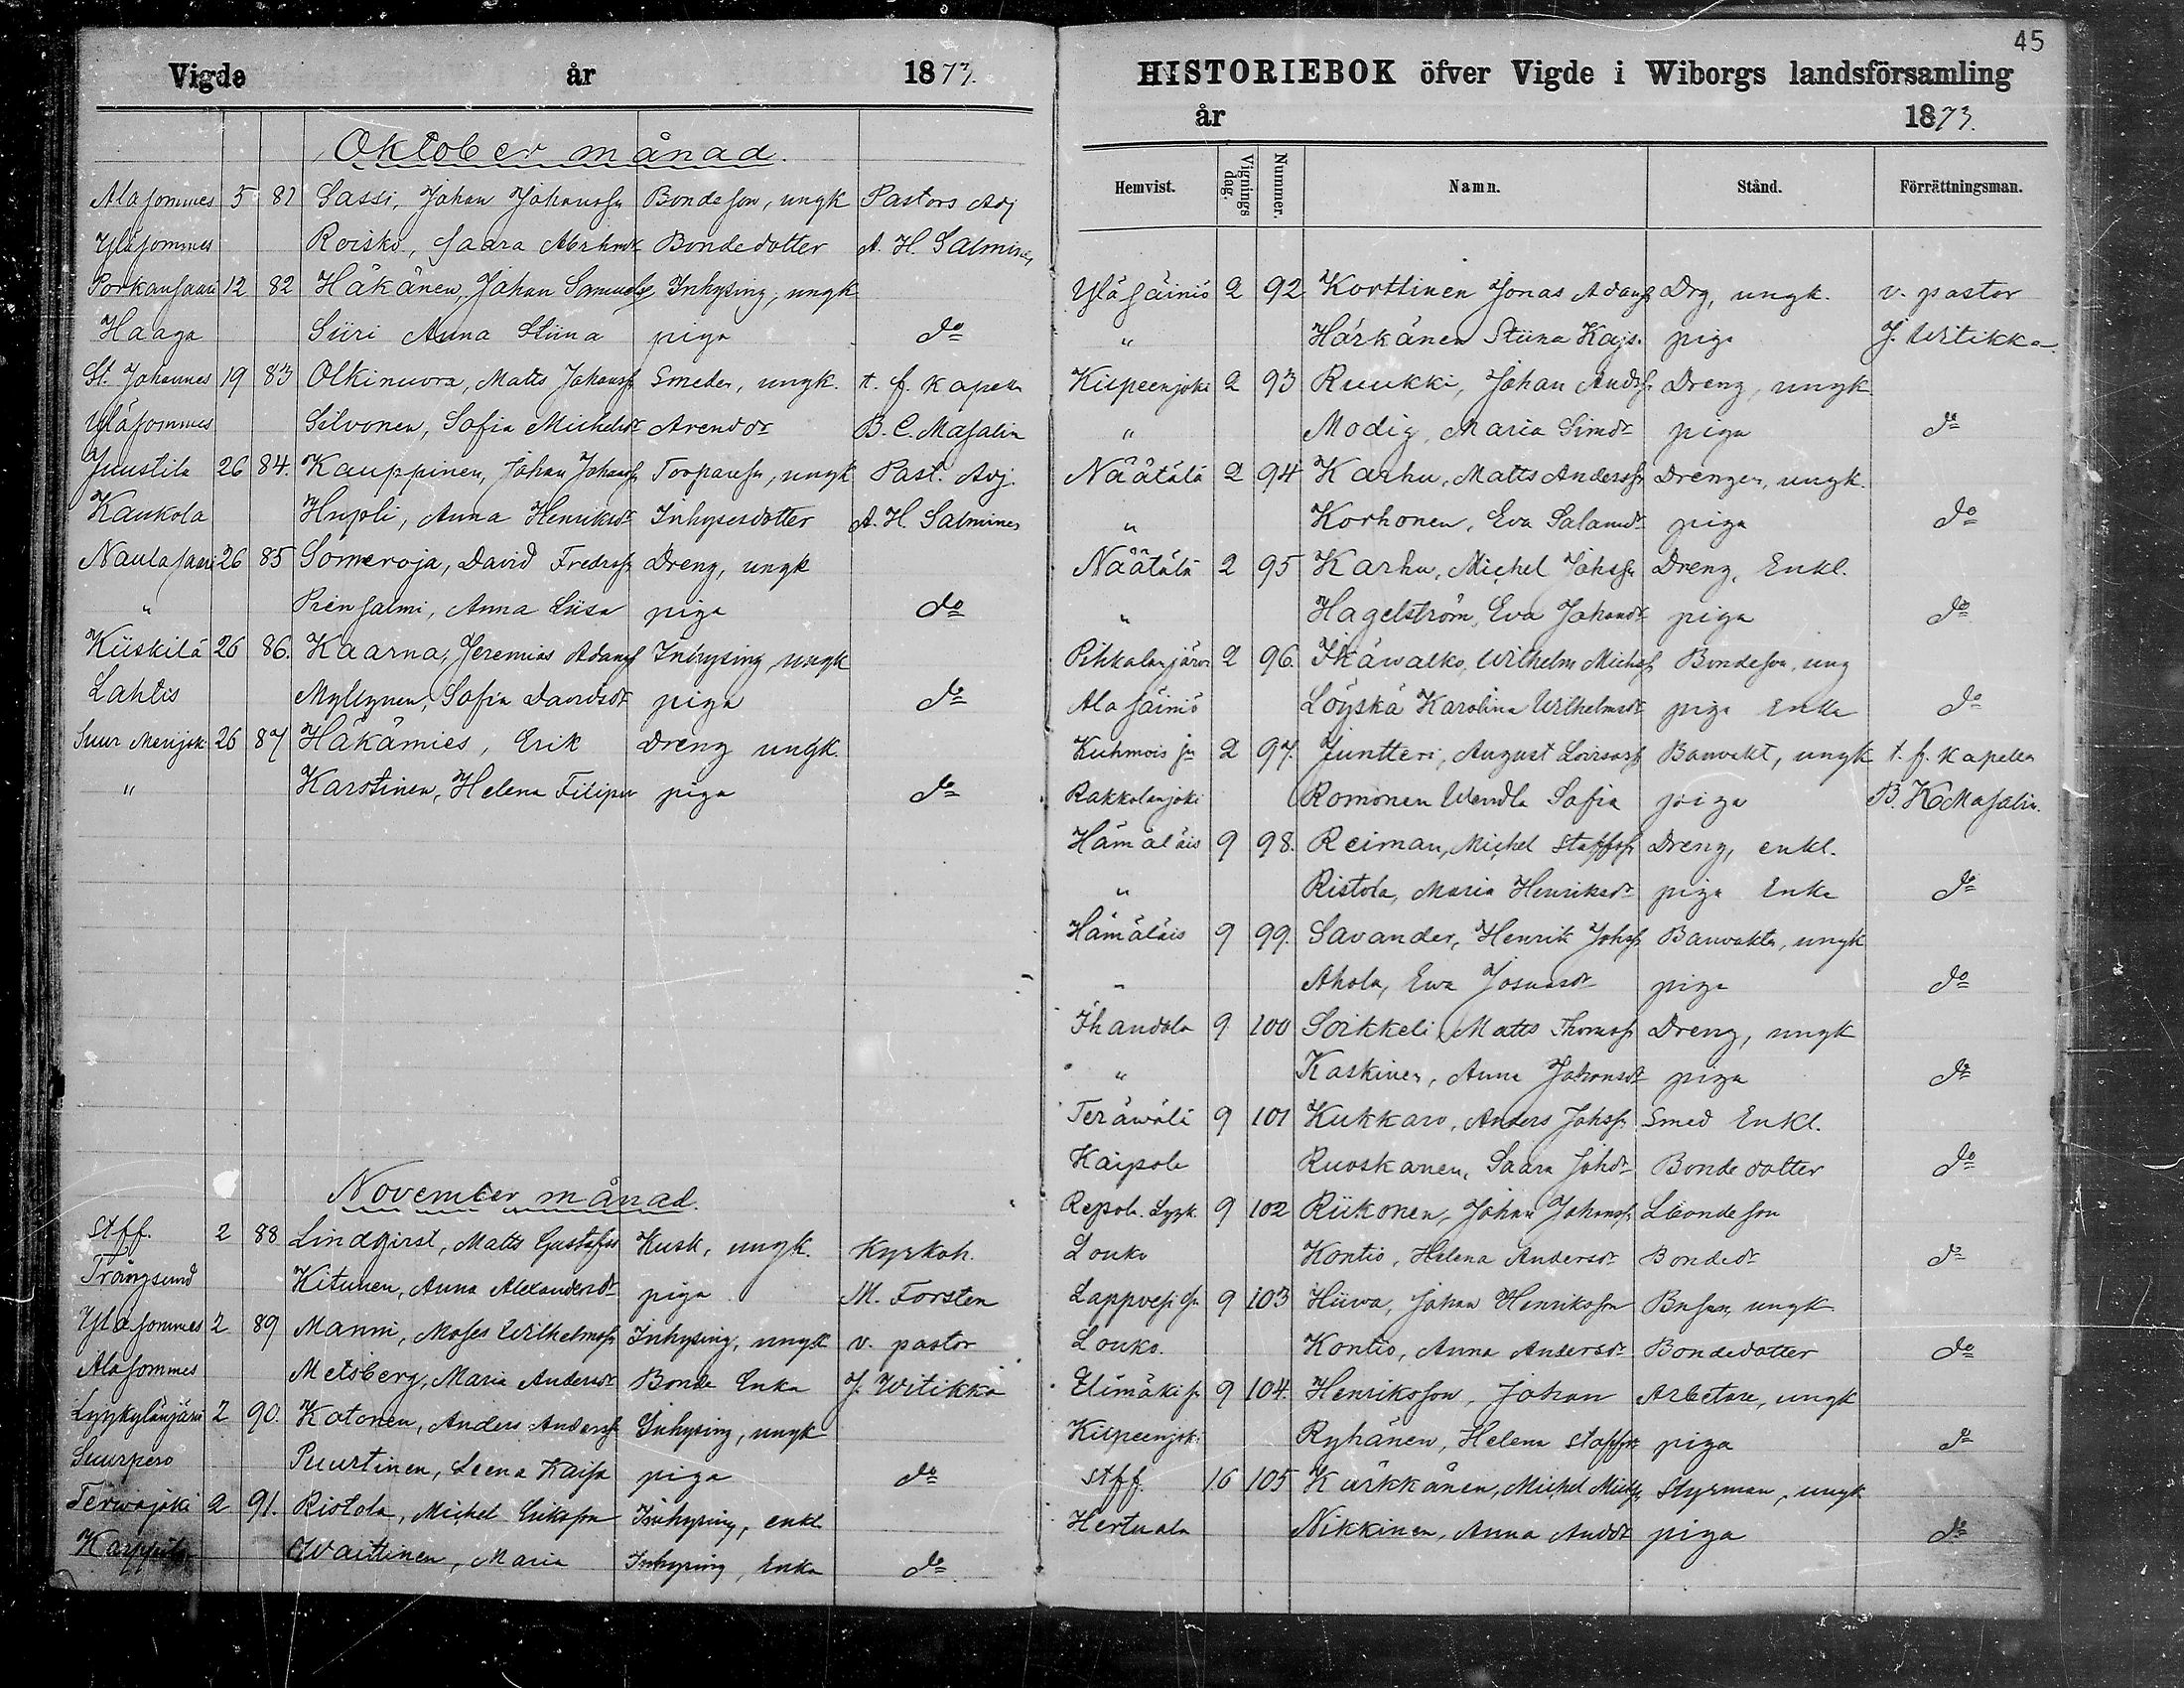 Vigde år 1873.
Oktober månad.
Alasommes 5 81 Sassi, Johan Johanssn Bondeson, ungk Pastors Adj
Yläsommes Roisko, Saara Abrhmdr Bondedotter A. H. Salminen
Porkansaari 12 82 Häkänen, Johan Samuelss Inhysing, ungk
Haaga Siiri Anna Stiina piga do
St. Johannes 19 83 Olkinuora, Matts Johanss Smeden, ungk. t. f. Kapela
Yläsommes Silvonen, Sofia Michelsdr Arenddr B. C. Masalin
Juustila 26 84. Kauppinen, Johan Johanss Torparesn, ungk Past. Adj.
Kaukola Hupli, Anna Henriksdr Inhysesdotter A. H. Salminen
Naulasaari 26 85 Someroja, David Fredrss Dreng, ungk
" Piensalmi, Anna Liisa piga do
Kiiskilä 26 86. Kaarna, Jeremias Adamss Inhysing, ungk
Lahtis Myllynen, Sofia Davidsdr piga do
Suur Merijok 26 87 Häkämies, Erik Dreng ungk.
" Karstinen, Helena Filipdr piga do
November månad.
Stff. 2 88 Lindqirst, Matts Gustafss Kusk, ungk. Kyrkoh.
Trångsund Kitunen, Anna Alexandersdr piga M. Forsten
Yläsommes 2 89 Manni, Moses Wilhelmss Inhysing, ungk v. pastor
Alasommes Metsberg, Maria Andersdr Bonde Enka J. Witikka
Lyykylänjärvi 2 90. Katonen, Anders Anderss Inhysing, ungk
Suurpero Puurtinen, Leena Kaisa piga do
Terwajoki 2 91. Ristola, Michel Eriksson Inhysing, enkl
Karppila Waittinen, Maria Inhysing, Enka do
45
HISTORIEBOK öfver Vigde i Wiborgs landsförsamling
år 1873.
Hemvist. Vignings dag. Nummer. Namn. Stånd. Förrättningsman.
Yläsäiniö 2 92 Korttinen Jonas Adamss Drg, ungk. v. pastor
" Härkänen Stiina Kajs. piga J. Witikka
Kilpeenjoki 2 93 Ruukki, Johan Andrs. Dreng, ungk
" Modig, Maria Simdr piga do
Näätälä 2 94 Karhu, Matts Anderss Drengen, ungk.
" Korhonen, Eva Salamdr piga do
Näätälä 2 95 Karhu, Michel Johss Dreng, Enkl.
" Hagelström, Eva Johandr piga do
Pihkalanjärvi 2 96. Ikäwalko, Wilhelm Michss Bondeson, ung
Alasäiniö Löyskä Karolina Wilhelmsdr piga Enka do
Kuhmois sn 2 97. Juntteri, August Lovisass Banvakt, ungk t. f. Kapela
Rakkolanjoki Romonen Wendla Sofia piga B. K. Masalin.
Hämäläis 9 98. Reiman, Michel Staffss Dreng, enkl.
" Ristola, Maria Henriksdr piga Enka do
Hämäläis 9 99. Savander, Henrik Johss Banvakta, ungk
" Ahola, Ewa Josuasdr piga do
Ihandola 9 100 Soikkeli Matts Thomass Dreng, ungk
" Kaskinen, Anna Johansdr piga do
Teräwälä 9 101 Kukkaro, Anders Johss. Smed Enkl.
Kaipola Ruoskanen, Saara Johdr Bondedotter do
Repola. Lyyk. 9 102 Riikonen, Johan Johanss. Bondeson
Louko Kontio, Helena Andersdr Bondedr do
Lappvesi sn 9 103 Hiiwa, Johan Henriksson Bnson, ungk
Louko. Kontio, Anna Andersdr Bondedotter do
Elimäki sn 9 104. Henriksson, Johan Arbetare, ungk
Kilpeenjoki Ryhänen, Helena Staffsdr piga do
Stff. 16 105 Kärkkänen, Michel Michss Styrman, ungk
Hertuala Nikkinen, Anna Anddr piga do